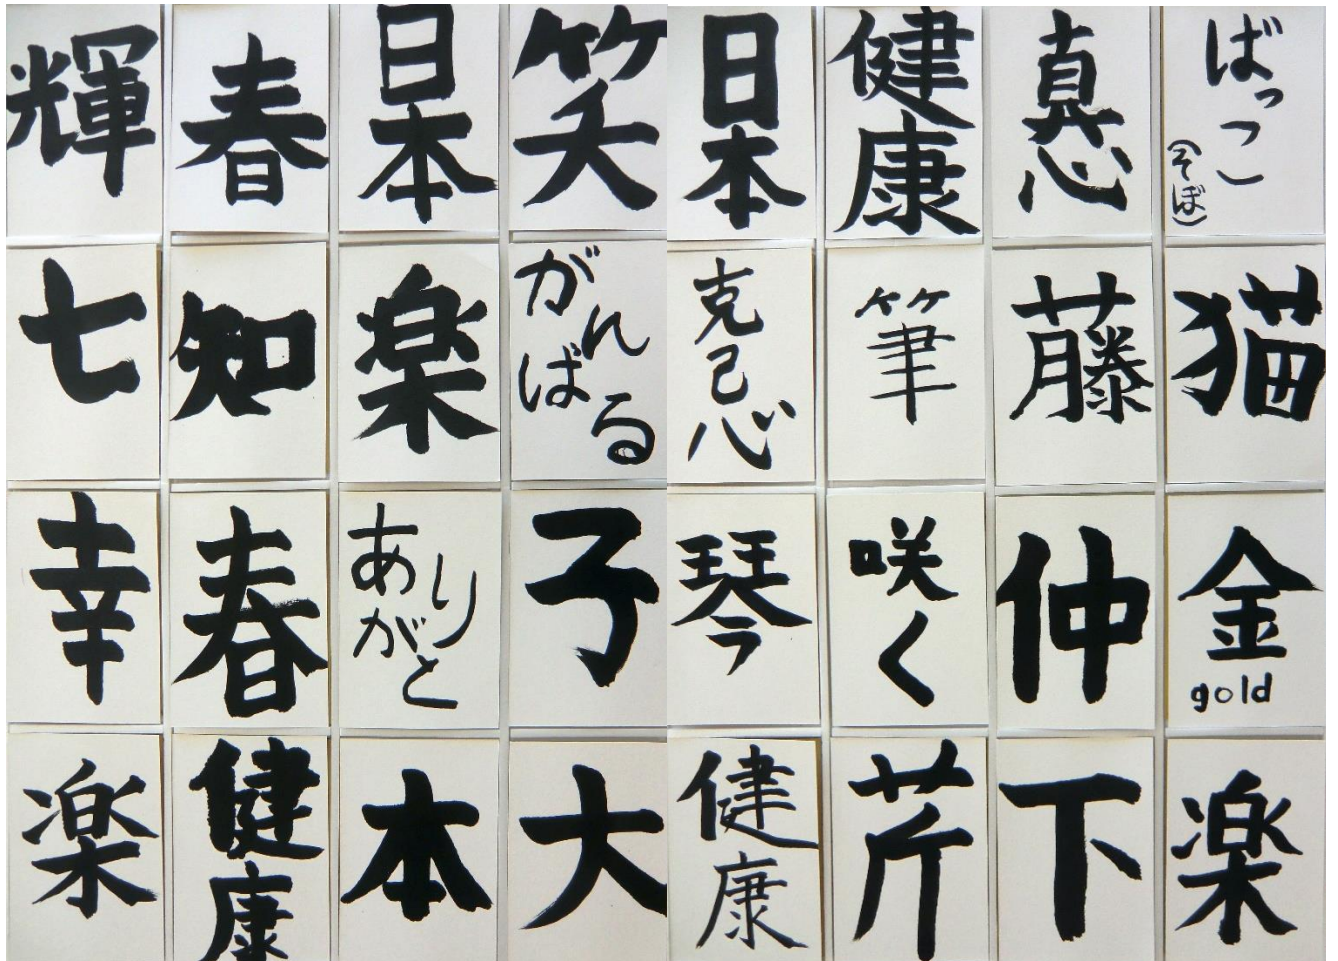 輝
春
日本
笑
日本
健康
真心
ばっつ
(そば)
七
知
楽
がんばる
克己心
筆
藤
猫
幸
春
ありがと
子
琴
咲く
仲
金
gold
楽
健康
本
大
健康
芹
下
楽